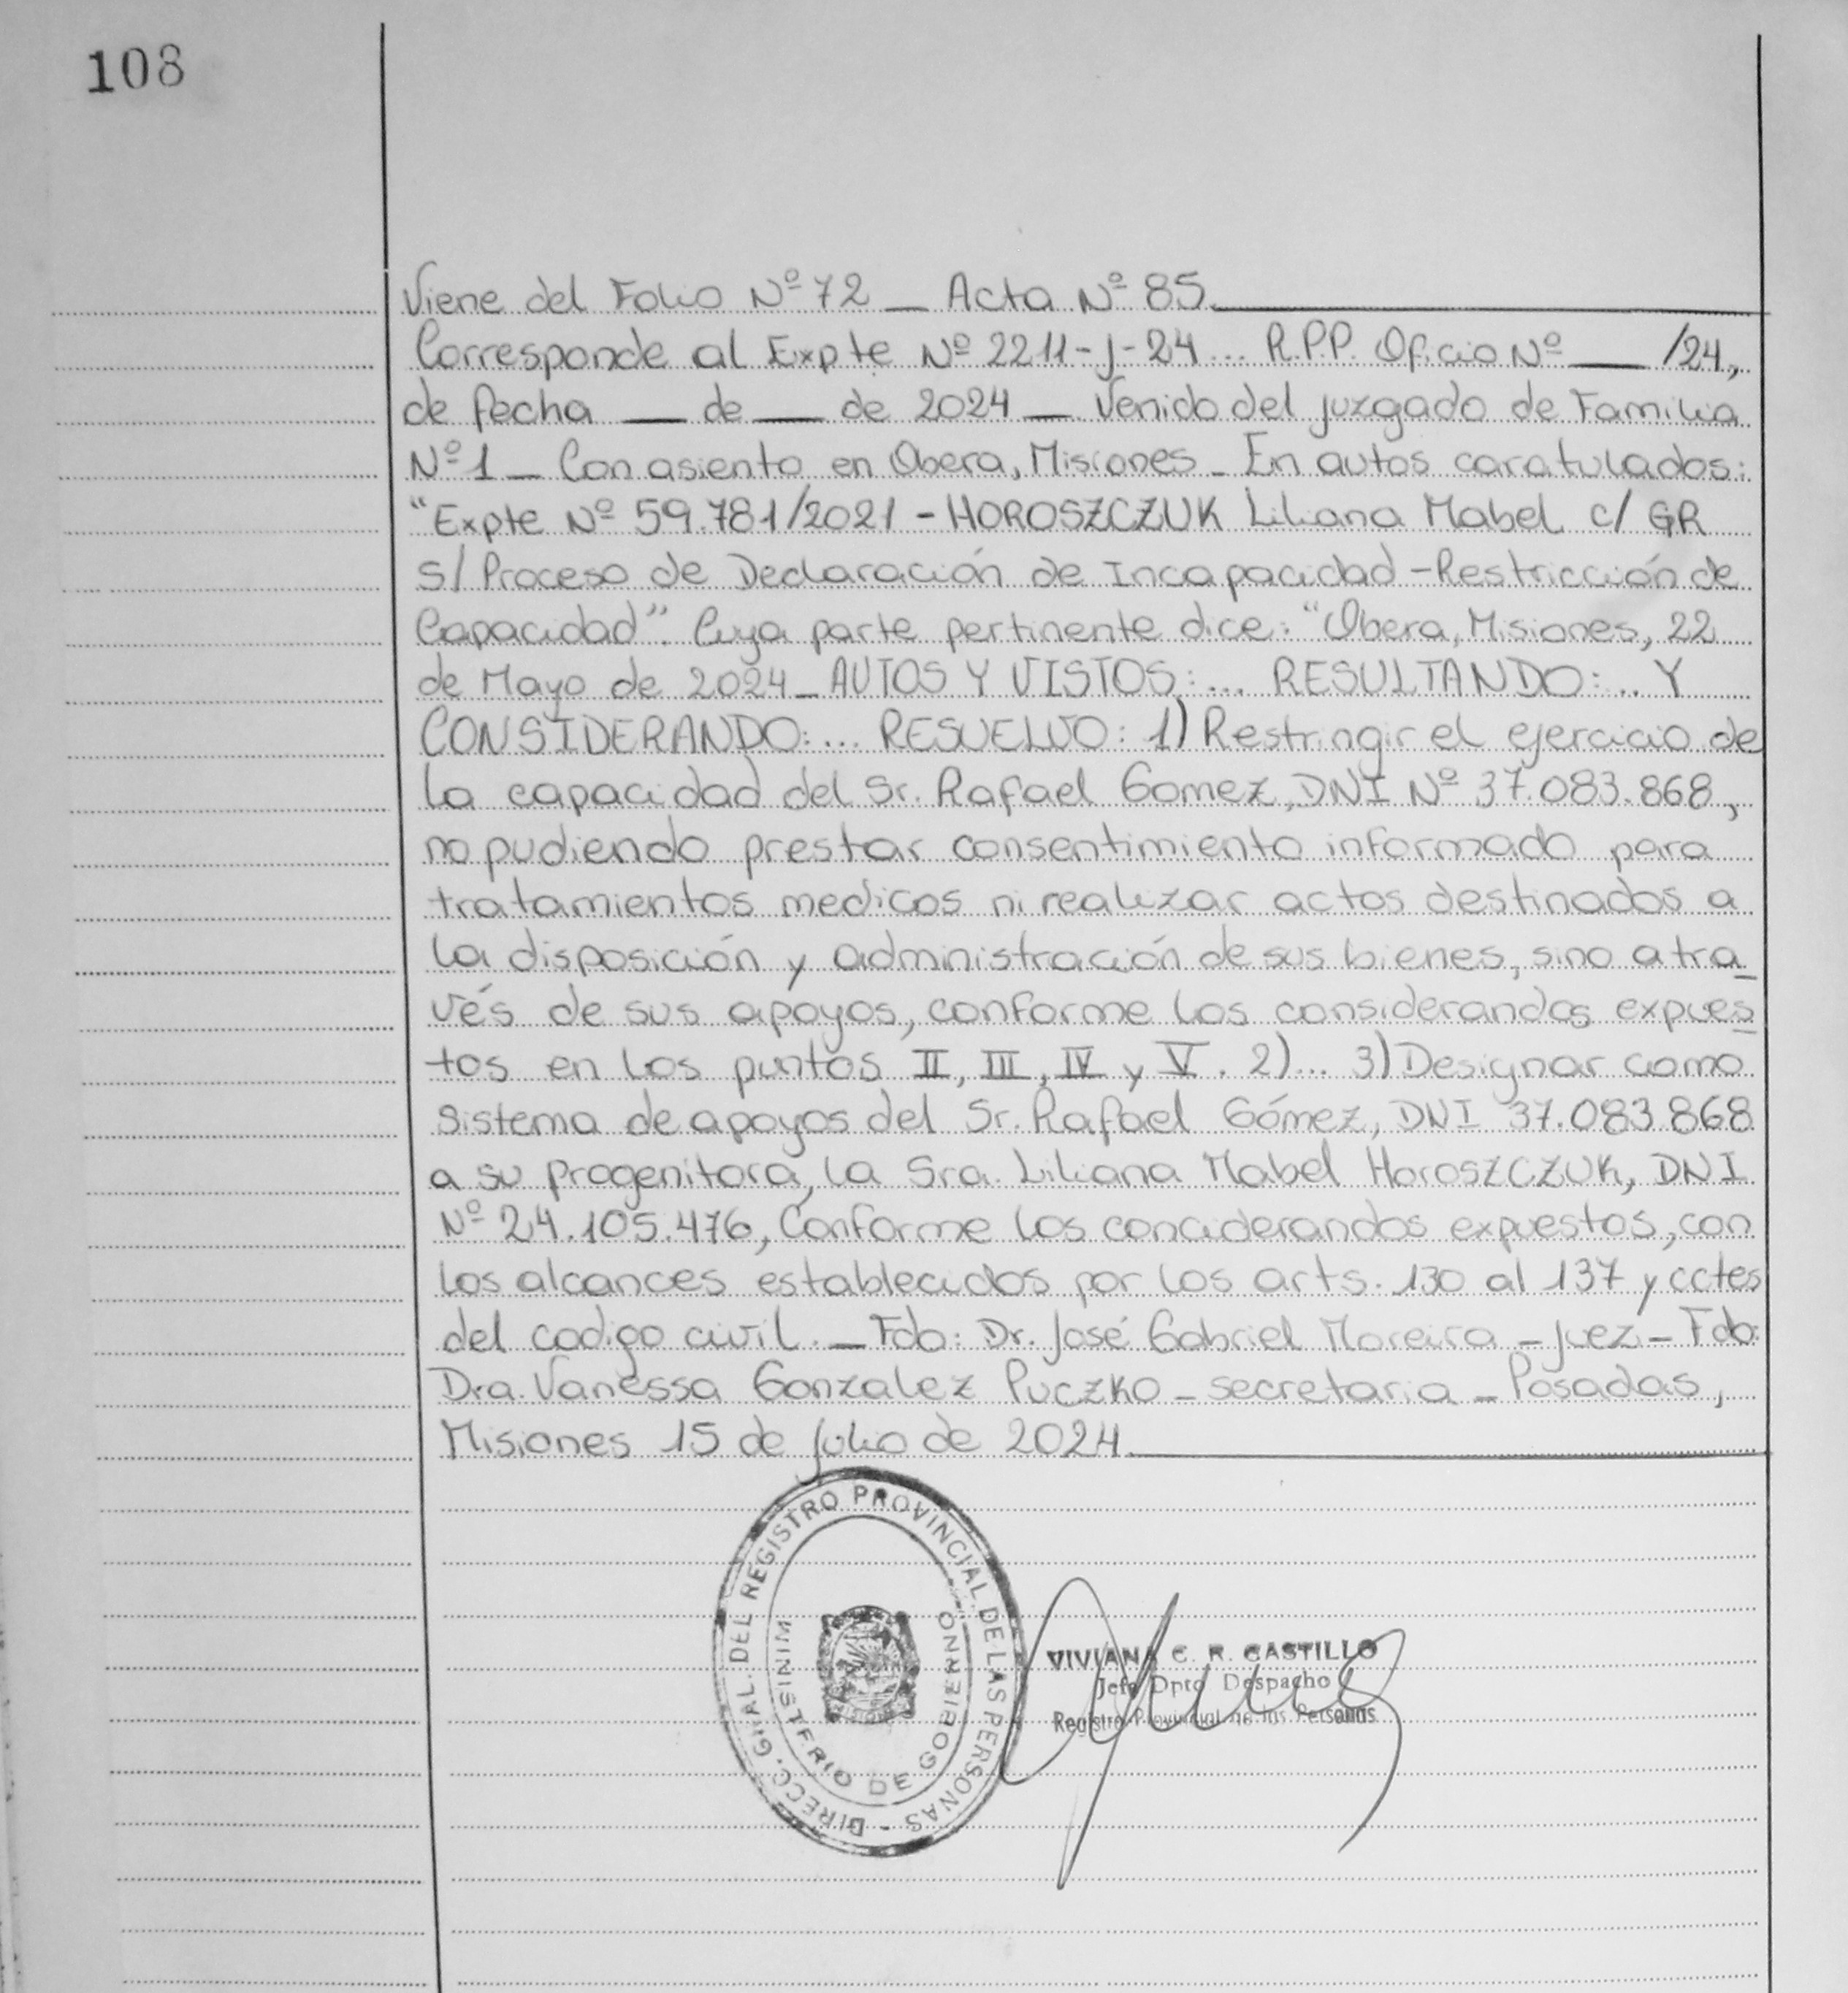 108
Viene del Folio Nº 72 _ Acta Nº 85.
Corresponde al Expte Nº 2211-J-24... R.P.P. Oficio Nº ___ /24,
de fecha __ de __ de 2024 _ Venido del Juzgado de Familia
Nº 1 _ Con asiento en Obera, Misiones _ En autos caratulados:
"Expte Nº 59.781/2021 - HOROSZCZUK Liliana Mabel c/ GR
s/ Proceso de Declaración de Incapacidad - Restricción de
Capacidad". Cuya parte pertinente dice: "Obera, Misiones, 22
de Mayo de 2024 _ AUTOS Y VISTOS:... RESULTANDO:.. Y
CONSIDERANDO:... RESUELVO: 1) Restringir el ejercicio de
la capacidad del Sr. Rafael Gomez, DNI Nº 37.083.868,
no pudiendo prestar consentimiento informado para
tratamientos medicos ni realizar actos destinados a
la disposición y administración de sus bienes, sino a tra_
vés de sus apoyos, conforme los considerandos expues_
tos en los puntos II, III, IV y V. 2)... 3) Designar como
sistema de apoyos del Sr. Rafael Gómez, DNI 37.083.868
a su progenitora, la Sra. Liliana Mabel HOROSZCZUK, DNI
Nº 24.105.476, Conforme los conciderandos expuestos, con
los alcances establecidos por los arts. 130 al 137 y cctes
del codigo civil. _ Fdo: Dr. José Gabriel Moreira - Juez - Fdo:
Dra. Vanessa Gonzalez Puczko - secretaria - Posadas,
Misiones 15 de Julio de 2024.
DIRECC. GRAL. DEL REGISTRO PROVINCIAL DE LAS PERSONAS -
MINISTERIO DE GOBIERNO
VIVIANA C. R. CASTILLO
Jefe Dpto Despacho
Registro Provincial de las Personas